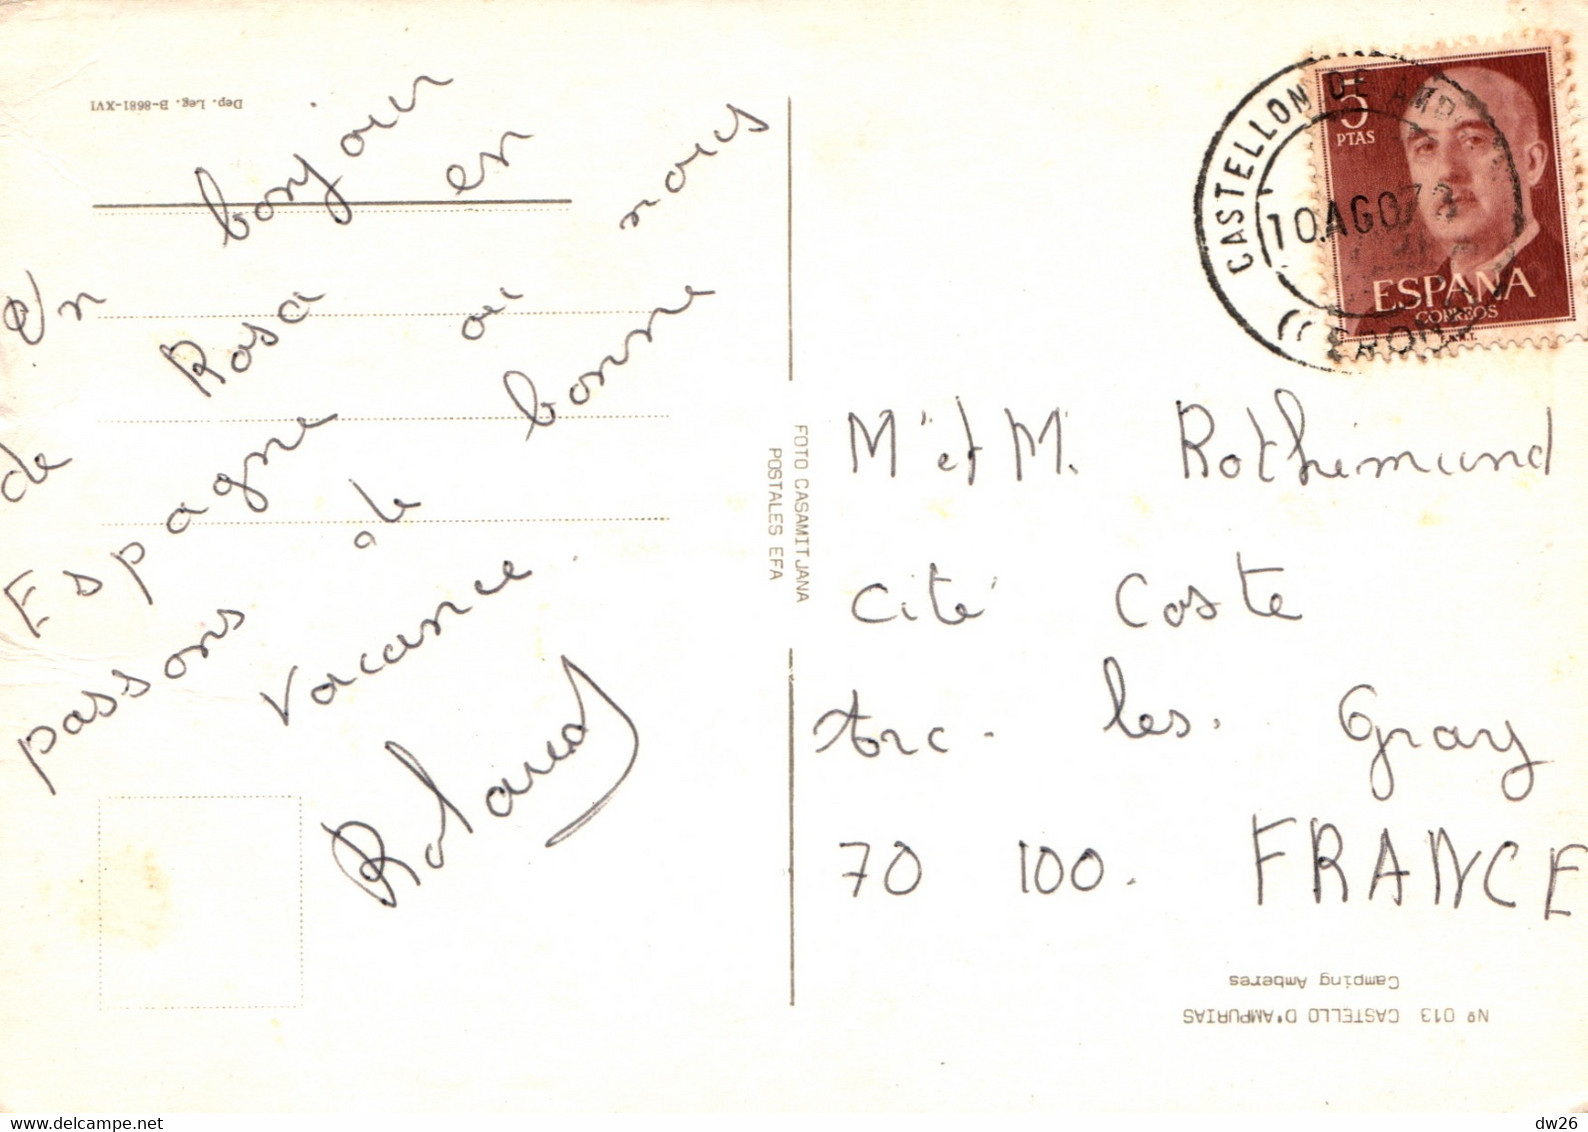 Dep. Leg. B-8681-XVI
Un bonjour
de Rosa en
Espagne ou nous
passons de bonne
vacance.
Roland
FOTO CASAMITJANA
POSTALES EFA
CASTELLON DE AMP
10 AGO 73
5
PTAS
ESPANA
CORREOS
F.N.M.T.
M et M. Rothimund
Cité Coste
Arc. les. Gray
70 100. FRANCE
Nº 013 CASTELLO D'AMPURIAS
Camping Amberes
delcampe.net
dw26